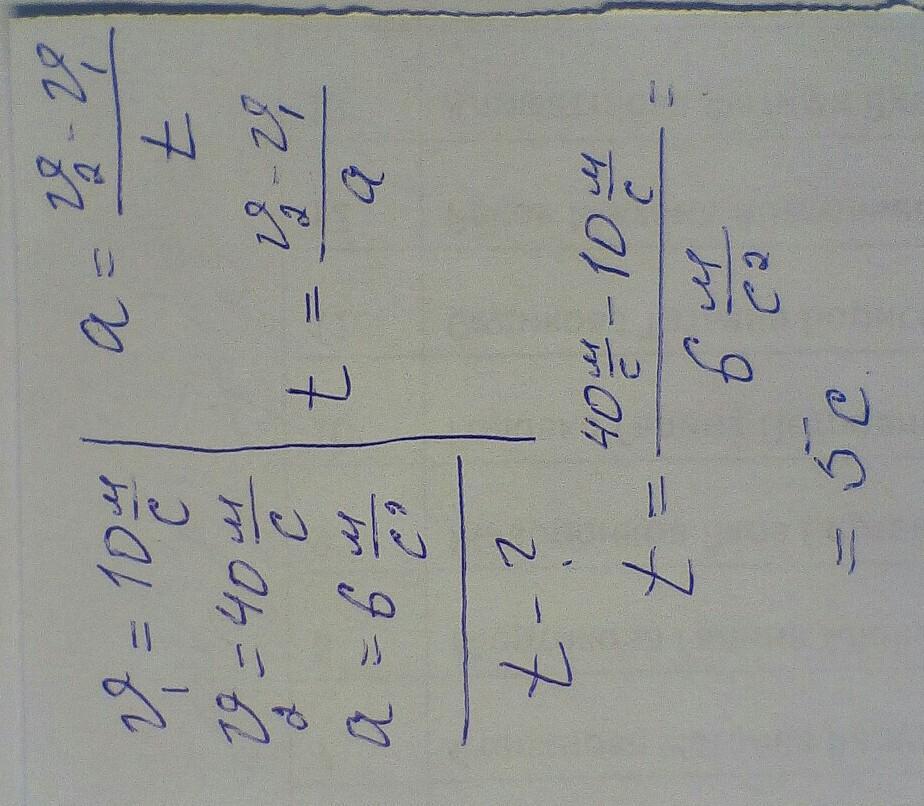 υ₁ = 10 м/с
υ₂ = 40 м/с
a = 6 м/с²
t - ?
a = (υ₂ - υ₁)/t
t = (υ₂ - υ₁)/a
t = (40 м/с - 10 м/с)/(6 м/с²) =
= 5 с